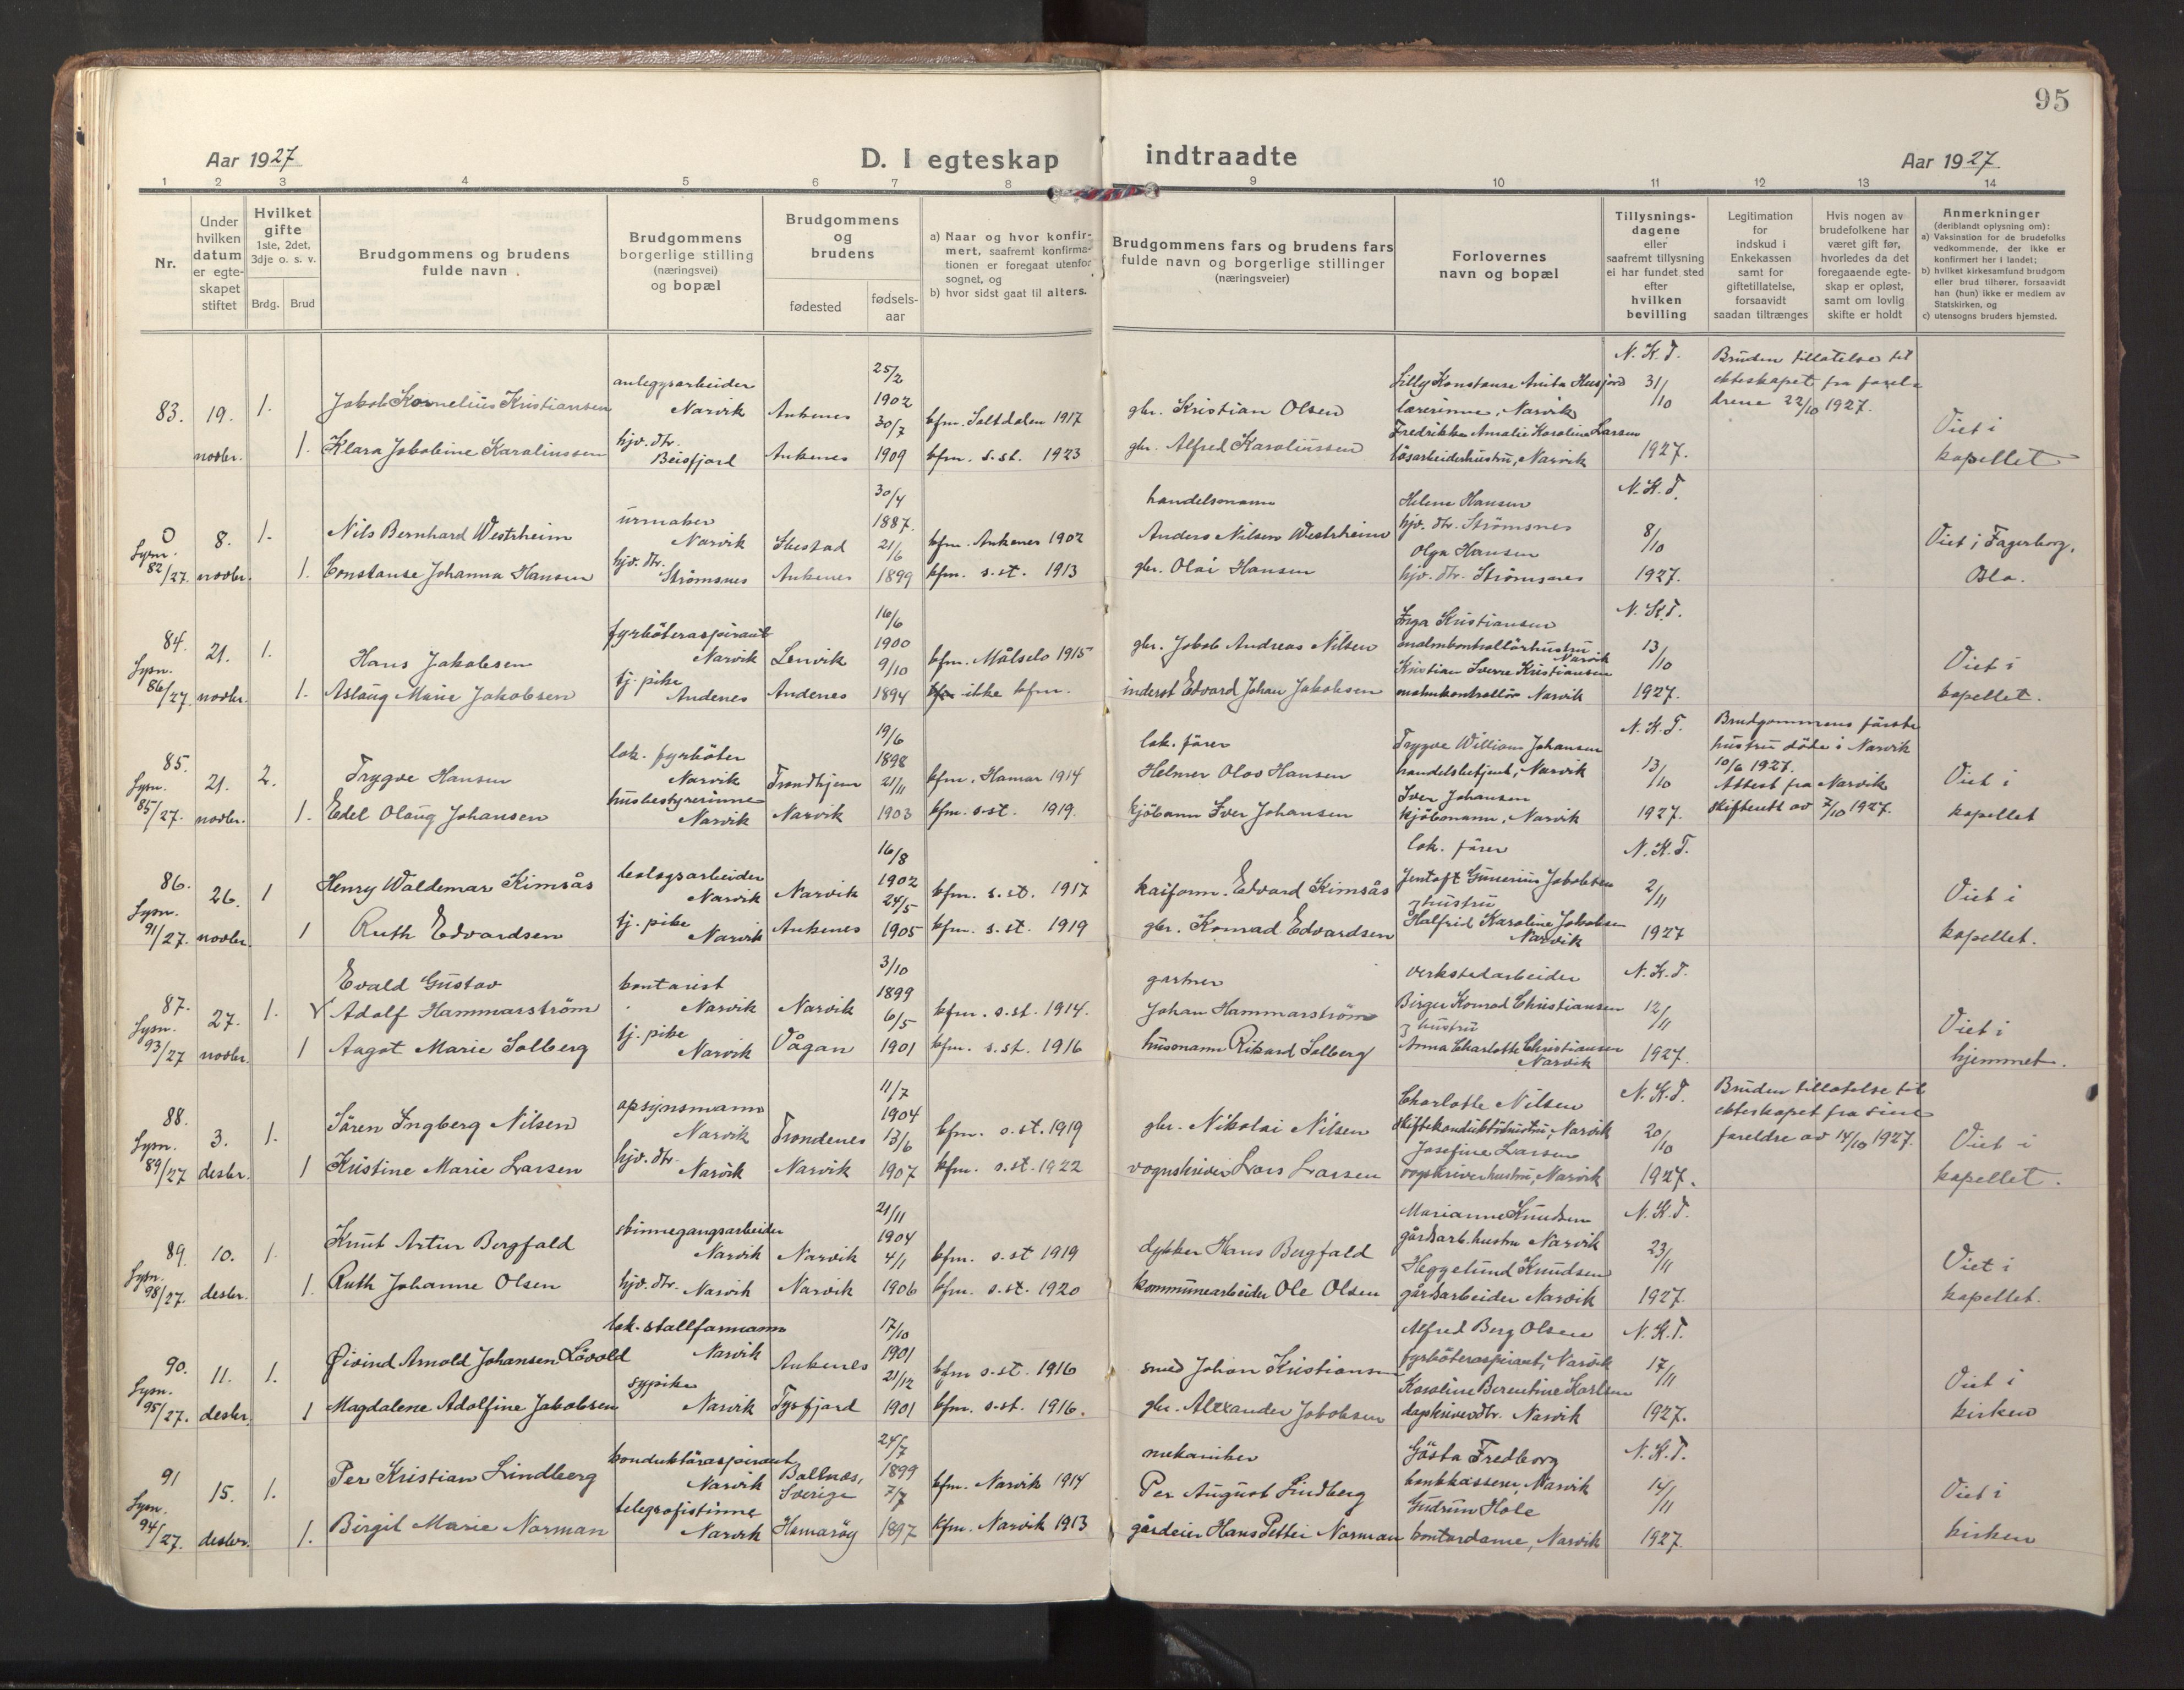 95
Aar 1927
D. I egteskap
indtraadte
Aar 1927
1 2 3 4 5 6 7 8 9 10 11 12 13 14
Nr.
Under hvilken datum er egte-skapet stiftet
Hvilket gifte
1ste, 2det, 3dje o. s. v.
Brdg. Brud
Brudgommens og brudens fulde navn.
Brudgommens borgerlige stilling (næringsvei) og bopæl
Brudgommens og brudens
fødested
fødsels-aar
a) Naar og hvor konfir-mert, saafremt konfirma-tionen er foregaat utenfor sognet, og
b) hvor sidst gaat til alters.
Brudgommens fars og brudens fars fulde navn og borgerlige stillinger (næringsveier)
Forlovernes navn og bopæl
Tillysnings-dagene eller saafremt tillysning ei har fundet sted efter hvilken bevilling
Legitimation for indskud i Enkekassen samt for giftetillatelse, forsaavidt saadan tiltrænges
Hvis nogen av brudefolkene har været gift før, hvorledes da det foregaaende egte-skap er opløst, samt om lovlig skifte er holdt
Anmerkninger (deriblandt oplysning om):
a) Vaksination for de brudefolks vedkommende, der ikke er konfirmert her i landet;
b) hvilket kirkesamfund brudgom eller brud tilhører, forsaavidt han (hun) ikke er medlem av Statskirken, og
c) utensogns bruders hjemsted.
83. 19. novbr. 1. Jakob Kornelius Kristiansen anleggsarbeider Narvik Ankenes 25/2 1902 kfm. Saltdalen 1917 gbr. Kristian Olsen Lilly Konstanse Anita Husjord lærerinne, Narvik N.K.T. 31/10 1927. Bruden tillatelse til ekteskapet fra forel-drene 22/10 1927. Viet i kapellet
1. Klara Jakobine Karolinssen hjv. dtr. Beisfjord Ankenes 30/7 1909 kfm. s.st. 1923 gbr. Alfred Karolinssen Fredrikke Amalie Karoline Larsen løsarbeiderhustru, Narvik
0 Lysn. 82/27. 8. novbr. 1. Nils Bernhard Westrheim urmaker Narvik Ibestad 30/4 1887. kfm. Ankenes 1902 handelsmann Anders Nilsen Westrheim Helene Hansen hjv. dtr. Strömsnes N.K.T. 8/10 1927. Viet i Fagerborg, Bla.
1. Constanse Johanna Hansen hjv. dtr. Strömsnes Ankenes 21/6 1899 kfm. s.st. 1913 gbr. Olai Hansen Olga Hansen hjv. dtr. Strömsnes
84. Lysn. 86/27. 21. novbr. 1. Hans Jakobsen fyrböteraspirant Narvik Lenvik 16/6 1900 kfm. Målselv 1915 gbr. Jakob Andreas Nilsen Inga Kristiansen malmkontrollörhustru Narvik N.K.T. 13/10 1927. Viet i kapellet.
1. Aslaug Marie Jakobsen tj. pike Andenes Andenes 9/10 1894 kfm ikke kfm. inderst Edvard Johan Jakobsen Kristian Sverre Kristiansen malmkontrollör Narvik
85. Lysn. 85/27. 21. novbr. 2. Trygve Hansen lok. fyrböter Narvik Trondhjem 19/6 1898 kfm. Hamar 1914 lok. förer Helmer Olas Hansen Trygve William Johansen handelsbetjent, Narvik N.K.T. 13/10 1927. Brudgommens første hustru døde i Narvik 10/6 1927. Attest fra Narvik skifterett av 7/10 1927. Viet i kapellet
1. Edel Olaug Johansen husbestyrerinne Narvik Narvik 21/11 1903 kfm. s.st. 1919. kjöbmann Iver Johansen Iver Johansen kjöbmann, Narvik
86. Lysn. 91/27. 26. novbr. 1 Henry Waldemar Kimsås beslagsarbeider Narvik Narvik 16/8 1902 kfm. s.st. 1917 kaiform. Edvard Kimsås lok. förer Jentoft Gunerius Jakobsen N.K.T. 2/11 1927 Viet i kapellet.
1 Ruth Edvardsen tj. pike Narvik Ankenes 24/5 1905 kfm. s.st. 1919 gbr. Konrad Edvardsen hustru Halfrid Karoline Jakobsen Narvik
87. Lysn. 93/27 27. novbr. 1. Evald Gustav Adolf Hammarström kontorist Narvik Narvik 3/10 1899 kfm. s.st. 1914. gartner Johan Hammarström verkstedarbeider Birger Konrad Christiansen N.K.T. 12/11 1927. Viet i hjemmet.
1 Aagot Marie Solberg tj. pike Narvik Vågan 6/5 1901 kfm. s.st. 1916 husmann Rikard Solberg hustru Anna Charlotte Christiansen Narvik
88. Lysn. 89/27 3. desbr. 1. Sören Ingberg Nilsen opsynsmann Narvik Trondenes 11/7 1904 kfm. s.st. 1919 gbr. Nikolai Nilsen Charlotte Nilsen skiftekonduktörhustru, Narvik N.K.T. 20/10 1927. Bruden tillatelse til ekteskapet fra sine foreldre av 14/10 1927. Viet i kapellet.
1 Kristine Marie Larsen hjv. dtr. Narvik Narvik 13/6 1907 kfm. s.st. 1922 vognskriver Lars Larsen Josefine Larsen vognskriverhustru, Narvik
89. Lysn. 98/27. 10. desbr. 1. Knut Artur Bergfald skinnegangsarbeider Narvik Narvik 21/11 1904 kfm. s.st 1919 dykker Hans Bergfald Marianne Knudsen gårdsarb. hustru Narvik N.K.T. 23/11 1927. Viet i kapellet.
1. Ruth Johanne Olsen hjv. dtr. Narvik Narvik 4/1 1906 kfm. s.st. 1920 kommunearbeider Ole Olsen Heggelund Knudsen gårdsarbeider Narvik
90. Lysn. 95/27. 11. desbr. 1. Øivind Arnold Johansen Lövold lok. stallformann Narvik Ankenes 17/10 1901 kfm s.st. 1916 smed Johan Kristiansen Alfred Berg Olsen fyrböteraspirant, Narvik N.K.T. 17/11 1927. Viet i kirken
1 Magdalene Adolfine Jakobsen sypike Narvik Tysfjord 21/12 1901 kfm. s.st. 1916. gbr. Alexander Jakobsen Karoline Berentine Karlsen dagskriverdtr. Narvik
91 Lysn. 94/27. 15. desbr. 1. Per Kristian Lindberg konduktöraspirant Narvik Bollnæs, Sverige 24/7 1899 kfm. Narvik 1914 mekaniker Per August Lindberg Gösta Fredborg bankkasserer, Narvik N.K.T. 14/11 1927. Viet i kirken
1. Birgit Marie Norman telegrafistinne Narvik Hamaröy 7/7 1897 kfm. Narvik 1913 gårdeier Hans Petter Norman Gudrun Hole kontordame, Narvik